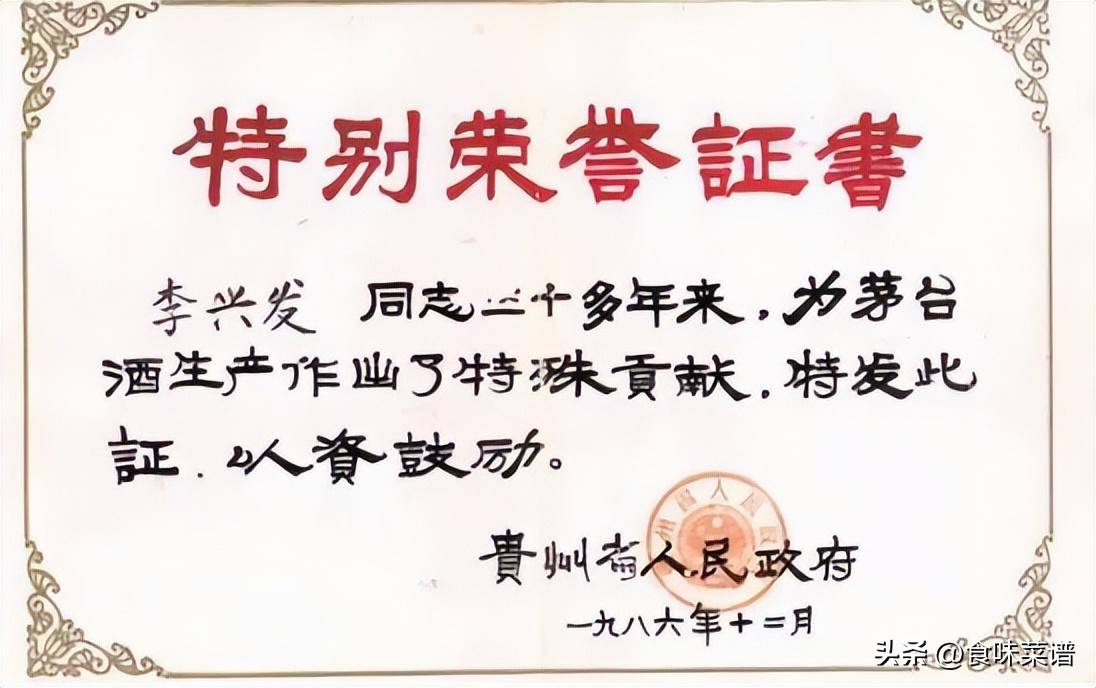 特别荣誉証書
李兴发 同志三十多年来，为茅台
酒生产作出了特殊貢献，特发此
証，以資鼓励。
貴州省人民政府
一九八六年十二月
头条 @食味菜谱